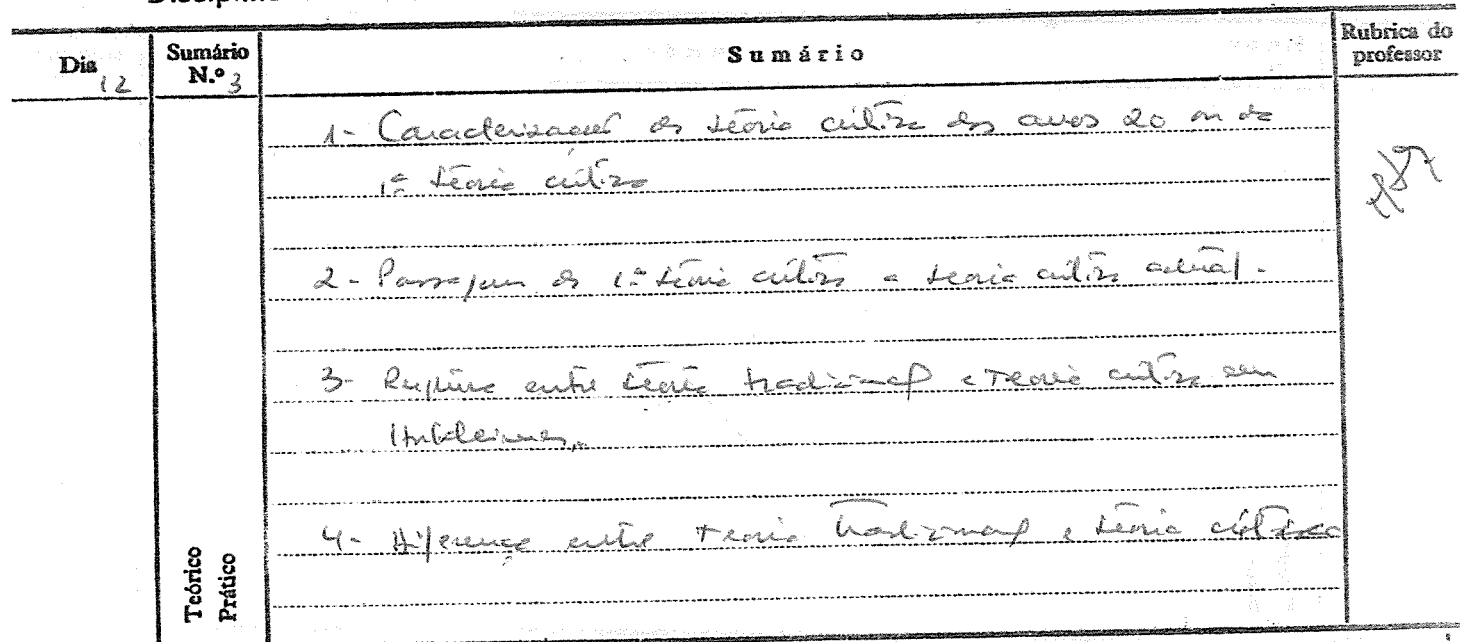 Dia 12
Sumário N.º 3
Sumário
Rubrica do professor
1- Caracterização da teoria crítica dos anos 20 ou da
1ª teoria crítica
2- Passagem da 1ª teoria crítica a teoria crítica actual.
3- Ruptura entre teoria tradicional e Teoria crítica em
Horkheimer.
4- Diferença entre teoria tradicional e teoria crítica
Teórico
Prático